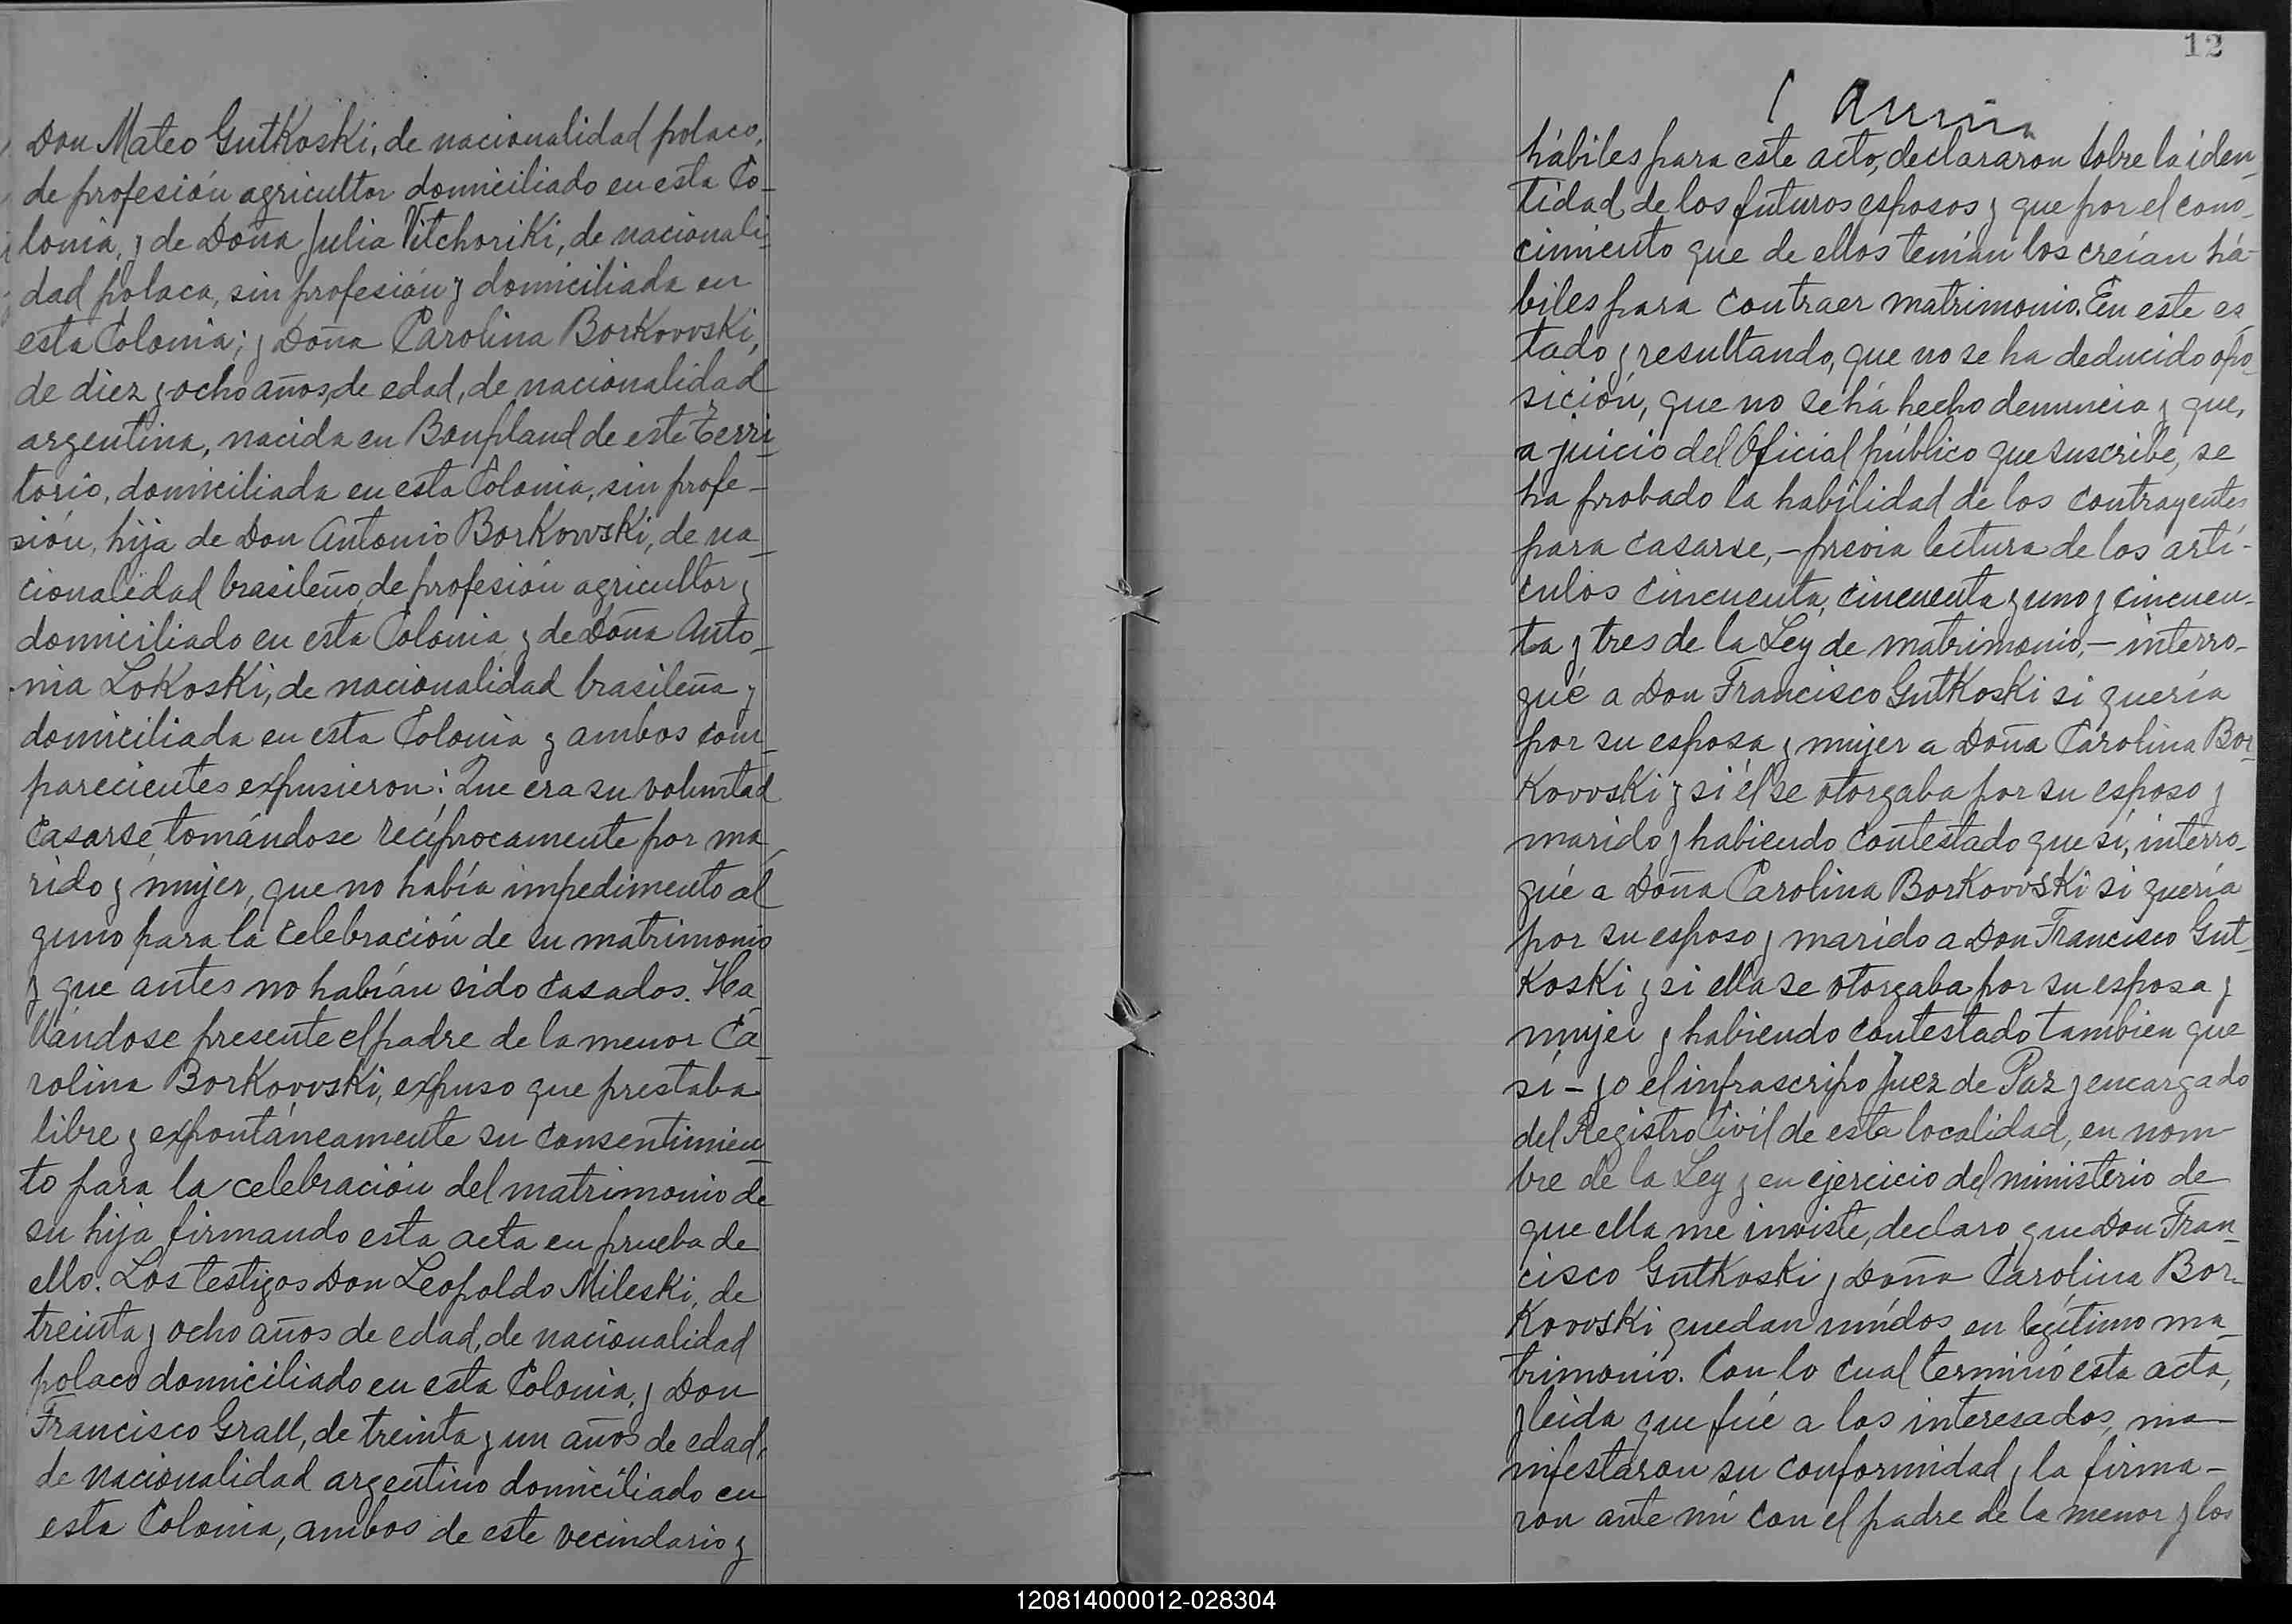 Don Mateo Gutkoski, de nacionalidad polaco,
de profesión agricultor domiciliado en esta Co-
lonia, y de Doña Julia Vitchoriki, de nacionali-
dad polaca, sin profesión y domiciliada en
esta Colonia; y Doña Carolina Borkovvski,
de diez y ocho años, de edad, de nacionalidad
argentina, nacida en Bonpland de este Terri-
torio, domiciliada en esta Colonia, sin profe-
sión, hija de Don Antonio Borkovvski, de na-
cionalidad brasileño, de profesión agricultor y
domiciliado en esta Colonia y de Doña Anto-
nia Lokoski, de nacionalidad brasileña y
domiciliada en esta Colonia y ambos com-
parecientes expusieron: Que era su voluntad
casarse, tomándose recíprocamente por ma-
rido y mujer, que no había impedimento al
guno para la celebración de su matrimonio
y que antes no habían sido casados. Ha-
llándose presente el padre de la menor Ca-
rolina Borkovvski, expuso que prestaba
libre y expontáneamente su consentimien-
to para la celebración del matrimonio de
su hija firmando esta acta en prueba de
ello. Los testigos Don Leopoldo Mileski, de
treinta y ocho años de edad, de nacionalidad
polaco domiciliado en esta Colonia, y Don
Francisco Grall, de treinta y un años de edad,
de nacionalidad argentino domiciliado en
esta Colonia, ambos de este vecindario y
12
hábiles para este acto, declararon sobre la iden-
tidad de los futuros esposos y que por el cono-
cimiento que de ellos tenían los creían há-
biles para contraer matrimonio. En este es-
tado y resultando, que no se ha deducido opo-
sición, que no se há hecho denuncia y que,
a juicio del Oficial público que suscribe, se
ha probado la habilidad de los contrayentes
para casarse, - previa lectura de los artí-
culos cincuenta, cincuenta y uno y cincuen-
ta y tres de la Ley de matrimonio, - interro-
gué a Don Francisco Gutkoski si quería
por su esposa y mujer a Doña Carolina Bor-
kovvski y si él se otorgaba por su esposo y
marido y habiendo contestado que sí, interro-
gué a Doña Carolina Borkovvski si quería
por su esposo y marido a Don Francisco Gut-
koski y si ella se otorgaba por su esposa y
mujer y habiendo contestado tambien que
sí - yo el infrascripo Juez de Paz y encargado
del Registro Civil de esta localidad, en nom-
bre de la Ley y en ejercicio del ministerio de
que ella me inviste, declaro que Don Fran-
cisco Gutkoski y Doña Carolina Bor-
kovvski quedan unidos en legítimo ma-
trimonio. Con lo cual terminó esta acta,
y leída que fué a los interesados, ma-
nifestaron su conformidad y la firma-
ron ante mí con el padre de la menor y los
120814000012-028304